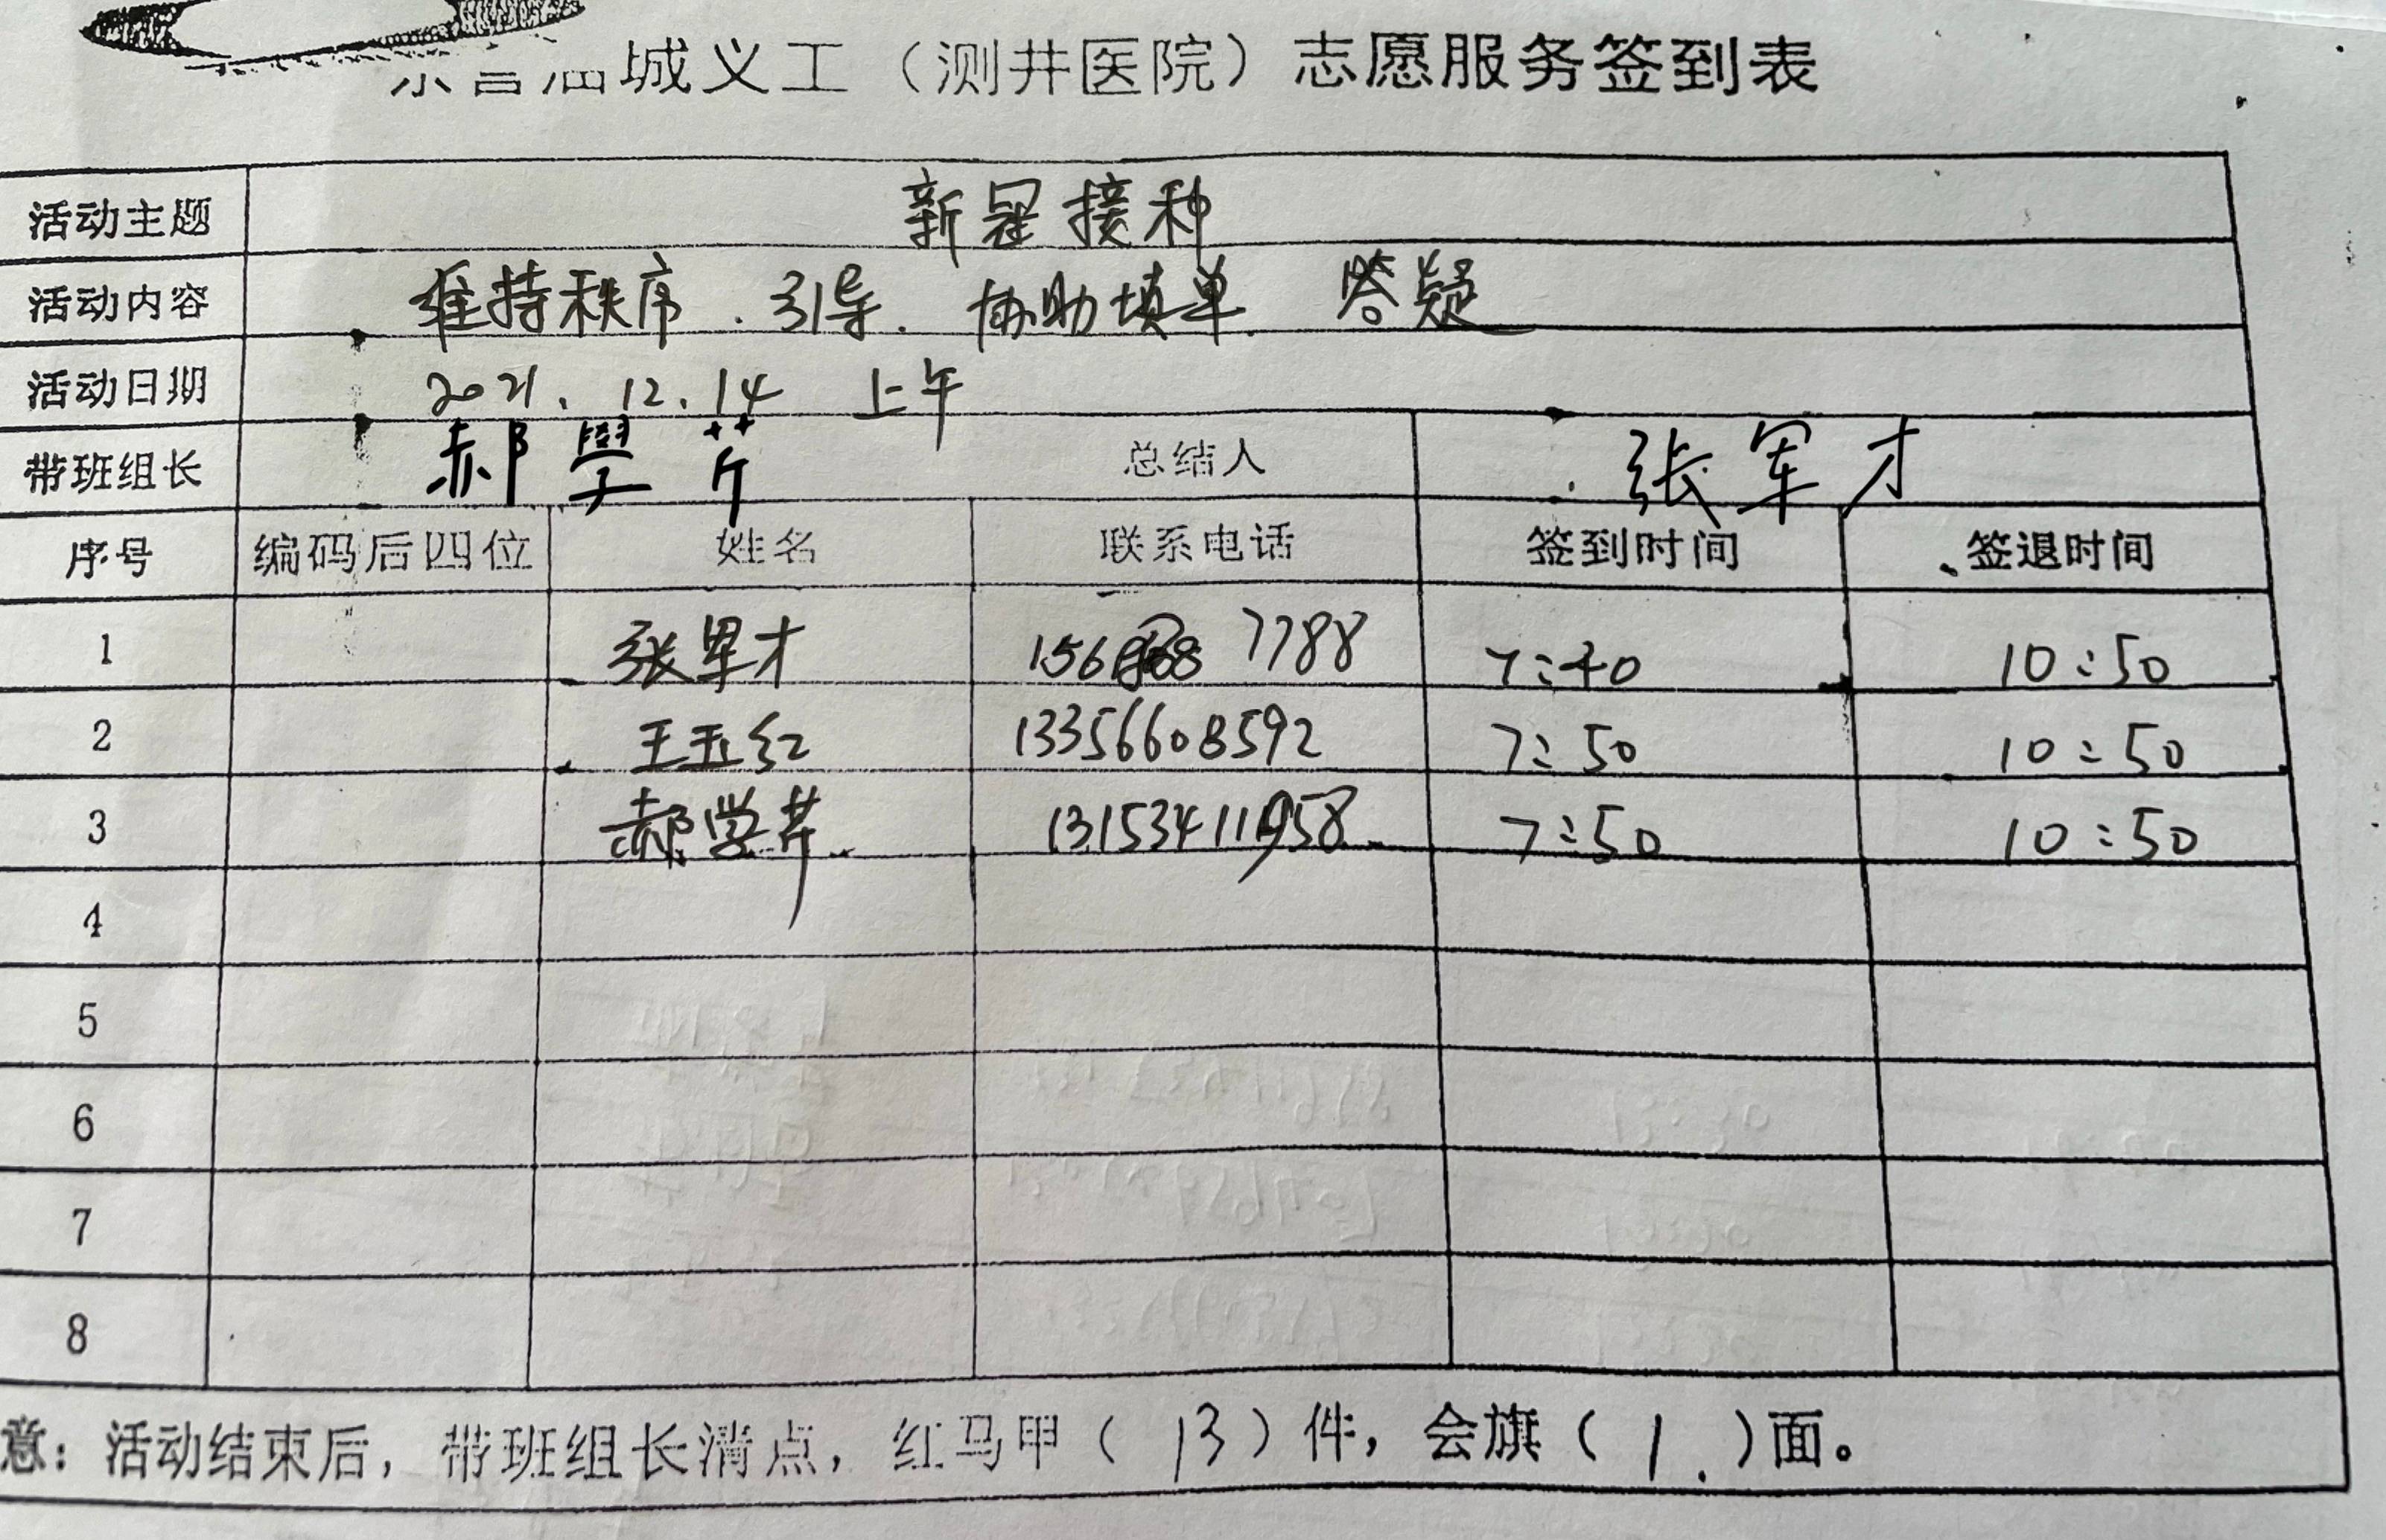 城义工（测井医院）志愿服务签到表
活动主题 新冠接种
活动内容 维持秩序．引导．协助填单．答疑
活动日期 2021.12.14 上午
带班组长 郝學芹 总结人 张军才
序号 编码后四位 姓名 联系电话 签到时间 签退时间
1 张军才 7788 7:40 10:50
2 王玉红 13356608592 7:50 10:50
3 郝学芹 7:50 10:50
4
5
6
7
8
意：活动结束后，带班组长清点，红马甲（13）件，会旗（1.）面。